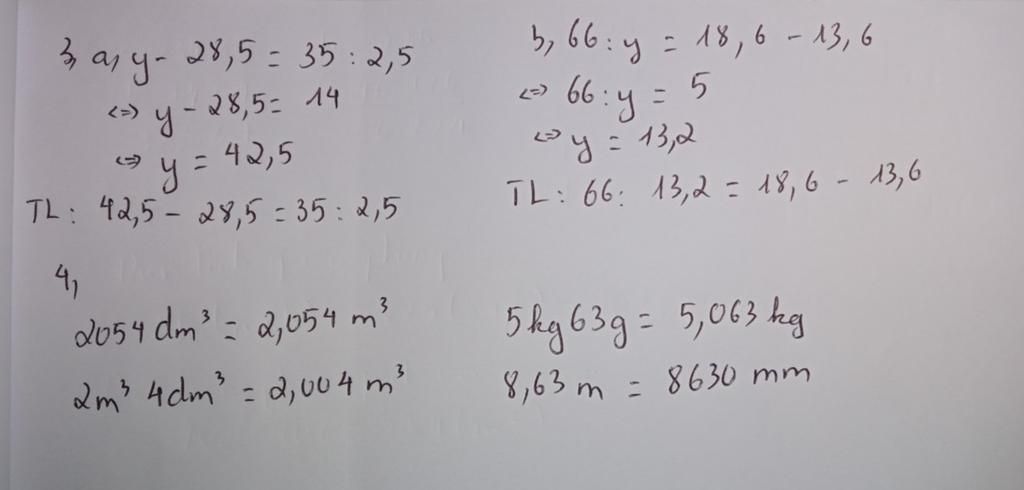 3, a, y - 28,5 = 35 : 2,5
<=> y - 28,5 = 14
<=> y = 42,5
TL : 42,5 - 28,5 = 35 : 2,5
b, 66 : y = 18,6 - 13,6
<=> 66 : y = 5
<=> y = 13,2
TL : 66 : 13,2 = 18,6 - 13,6
4,
2054 dm³ = 2,054 m³
2m³ 4dm³ = 2,004 m³
5kg63g = 5,063 kg
8,63 m = 8630 mm